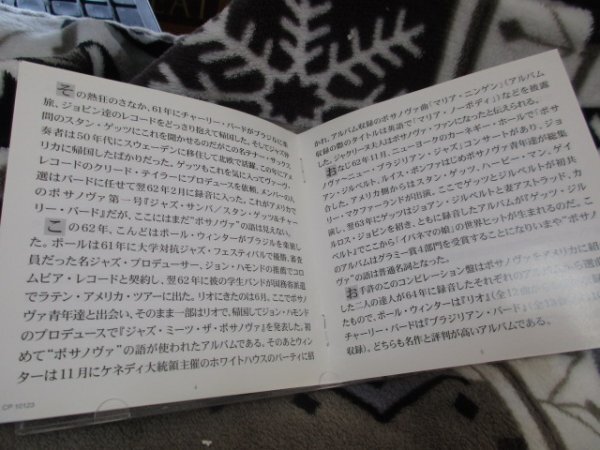 その熱狂のさなか、61年にチャーリー・バードがブラジルに楽
旅、ジョビン達のレコードをどっさり抱えて帰国した。そしてジャズ仲
間のスタン・ゲッツにこれを聞かせるのだがこの名テナー・サックス
奏者は50年代にスウェーデンに移住して北欧で活躍、この年にアメ
リカに帰国したばかりだった。ゲッツもこれを気に入ってヴァーヴ・
レコードのクリード・テイラーにプロデュースを依頼、メンバーの人
選はバードに任せて翌62年2月に録音に入った。これがアメリカで
のボサノヴァ第一号『ジャズ・サンバ/スタン・ゲッツ&チャー
リー・バード』だが、ここにはまだ“ボサノヴァ”の語は見えない。
この62年、こんどはポール・ウィンターがブラジルを楽旅し
た。ポールは61年に大学対抗ジャズ・フェスティバルで優勝、審査
員だった名ジャズ・プロデューサー、ジョン・ハモンドの推薦でコロ
ムビア・レコードと契約し、翌62年に彼の学生バンドが国務省派遣
でラテン・アメリカ・ツアーに出た。リオにきたのは6月、ここでボサノ
ヴァ青年達と出会い、そのまま一部はリオで、帰国してジョン・ハモンド
のプロデュースで『ジャズ・ミーツ・ザ・ボサノヴァ』を発表した。初
めて“ボサノヴァ”の語が使われたアルバムである。そのあとウィン
ターは11月にケネディ大統領主催のホワイトハウスのパーティに招
CP 10123
かれ、アルバム収録のボサノヴァ曲「マリア・ニンゲン」(アルバム
収録の際のタイトルは英語で「マリア・ノーボディ」)などを披露
した。ジャクリーヌ夫人はボサノヴァ・ファンになったと伝えられる。
おなじ62年11月、ニューヨークのカーネギー・ホールで「ボサ
ノヴァ〜ニュー・ブラジリアン・ジャズ」コンサートがあり、ジョ
アン・ジルベルト、ルイス・ボンファはじめボサノヴァ青年達が総集
合した。アメリカ側からはスタン・ゲッツ、ハービー・マン、ゲイ
リー・マクファーランドが出演。ここでゲッツとジルベルトが初共
演し、翌63年にゲッツはジョアン・ジルベルトと妻アストラッド、カ
ルロス・ジョビンを招き、ともに録音したアルバムが『ゲッツ・ジル
ベルト』でここから「イパネマの娘」の世界ヒットが生まれるのだ。こ
のアルバムはグラミー賞4部門を受賞することになりいまや“ボサノ
ヴァ”の語は普通名詞となった。
お手許のこのコンピレーション盤はボサノヴァをアメリカに紹
介した二人の達人が64年に録音したそれぞれのアルバムから
たもので、ポール・ウィンターは『リオ』(全12曲
チャーリー・バードは『ブラジリアン・バード』
収録)。どちらも名作と評判が高いアルバムである。